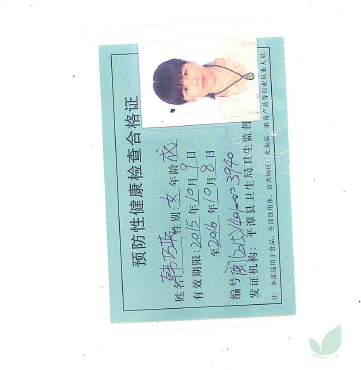 预防性健康检查合格证
姓名 韩巧珠 性别: 女 年龄 成
有效期限: 2015 年 10 月 9 日
至 2016 年 10 月 8 日
编号
发证机构: 平潭县卫生局卫生监督
注: 本证适用于食品、生活饮用水、公共场所、化妆品、消毒产品等行业从业人员。